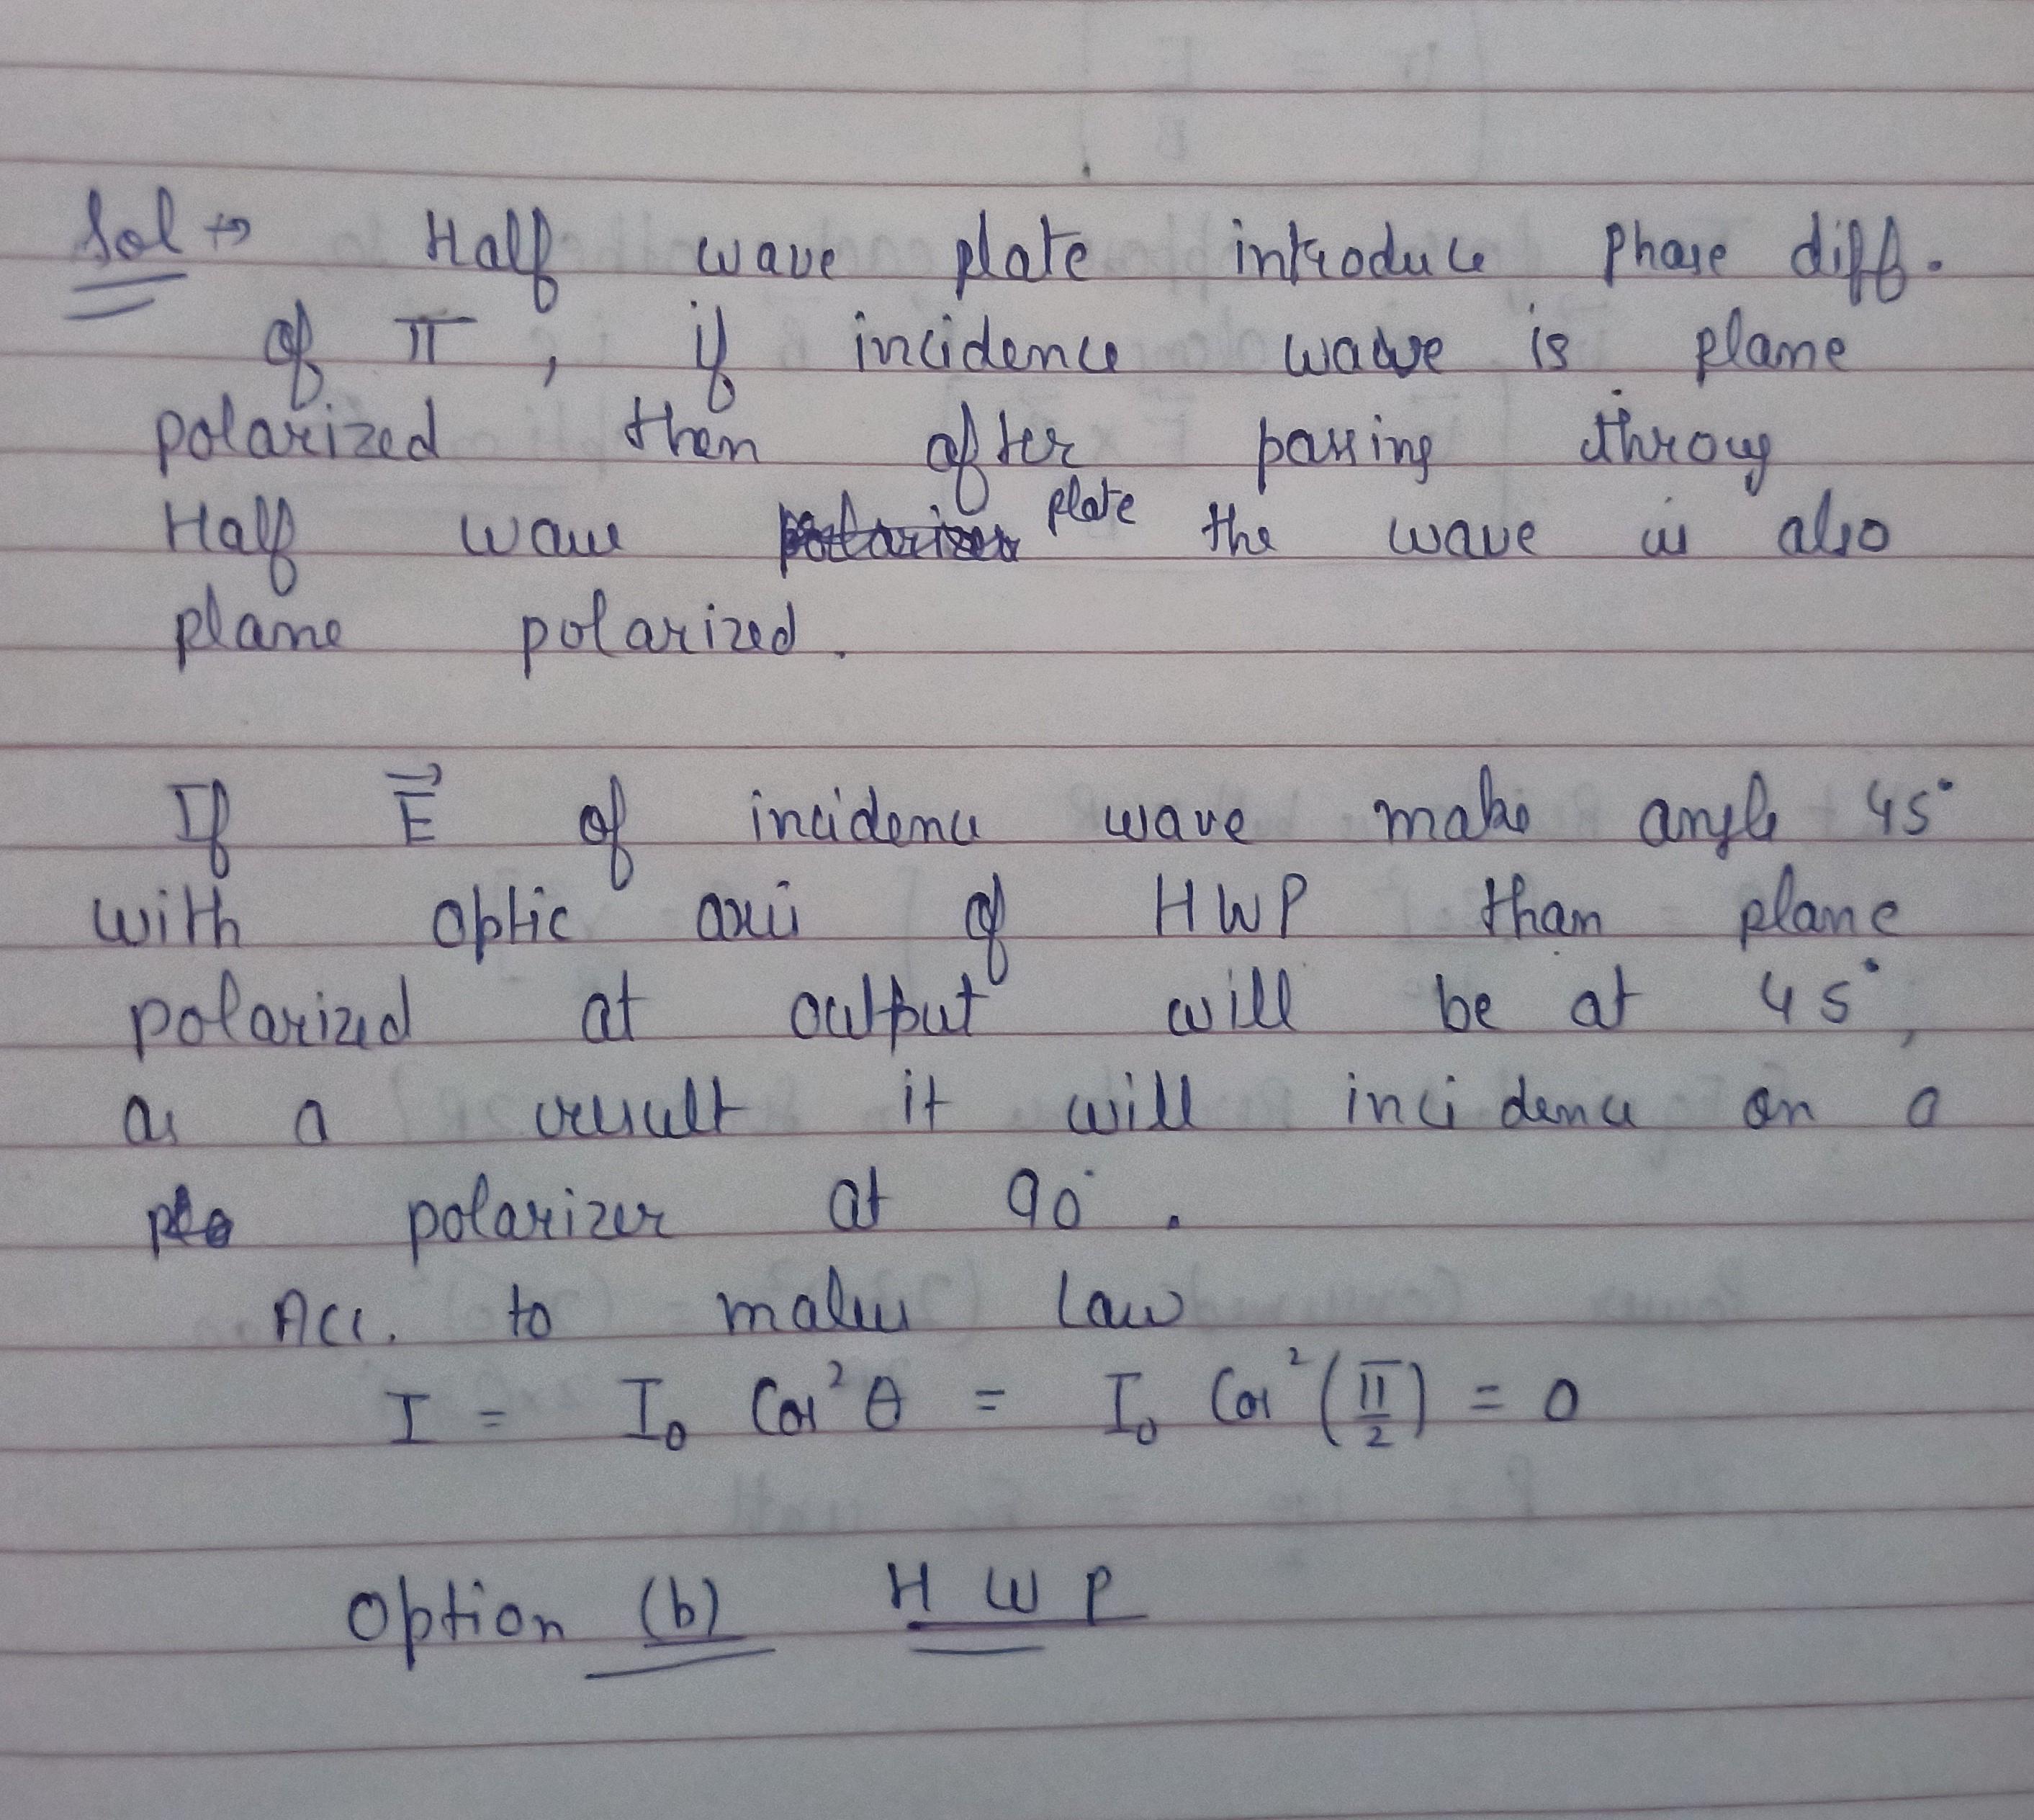 Sol → Half wave plate introduce phase diff.
of π, if incidence wave is plane
polarized then after passing throug
Half wave plate the wave is also
plane polarized.
If E⃗ of incidence wave make angle 45°
with optic axis of HWP than plane
polarized at output will be at 45°,
as a result it will incidence on a
polarizer at 90°.
Acc. to malus law
I = I₀ Cos²θ = I₀ Cos²(π/2) = 0
Option (b) HWP